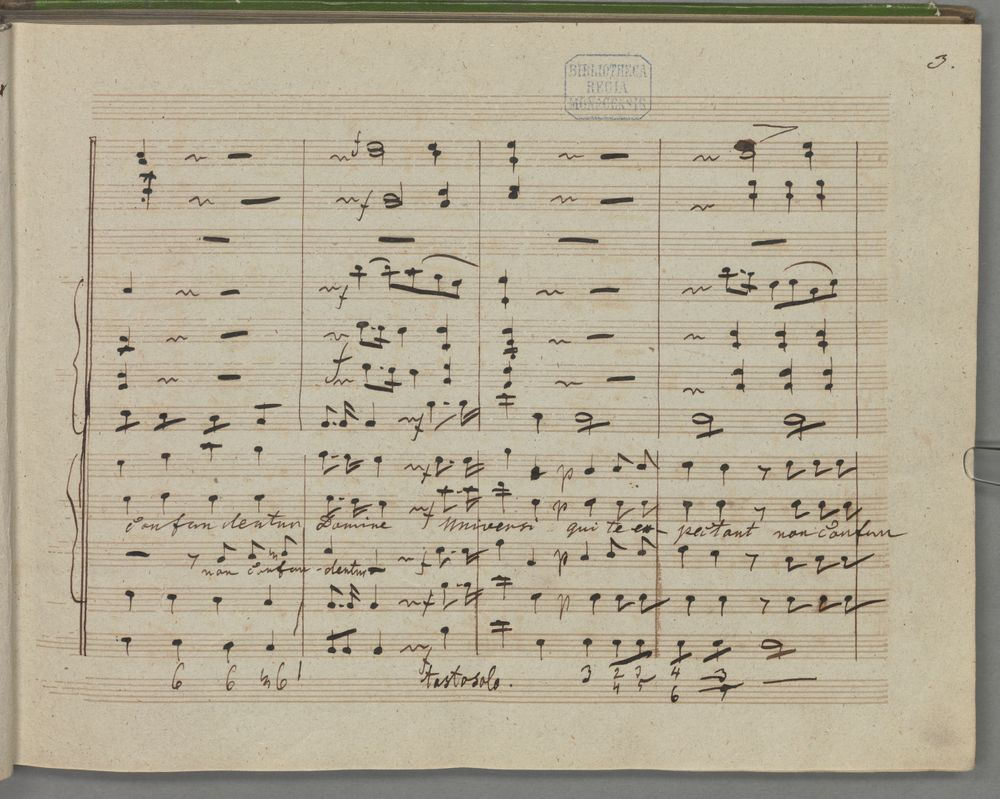 3.
BIBLIOTHECA
REGIA
MONACENSIS
f
f
f
f
f
f
p
f
p
confundentur Domine Universi qui te ex- pectant non confun
f
p
non confun-dentur
f
p
f
6 6 6 tasto solo. 3 2 3 4 3
4 5 6